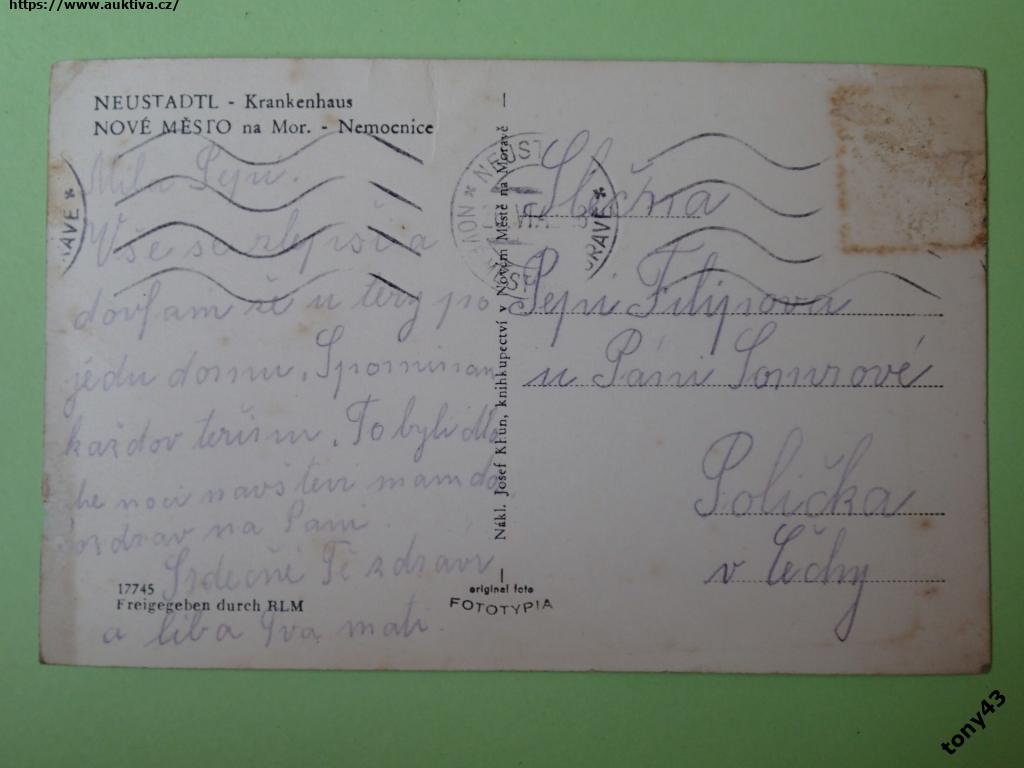 https://www.auktiva.cz/
NEUSTADTL - Krankenhaus
NOVÉ MĚSTO na Mor. - Nemocnice
Milá Pepi.
Vše se zlepšila
doufam že u tery po
jedu domu. Spominam
každov
To byli dlo
he noci navštev mam do
ozdrav na Pani.
Srdečně Tě zdraví
a líbá Tva mati.
17745
Freigegeben durch RLM
Nákl. Josef Křún, knihkupectví v Novém Městě na Moravě
original foto
FOTOTYPIA
Slečna
Pepi Filipova
u Páni
Polička
v Čechy
tony43